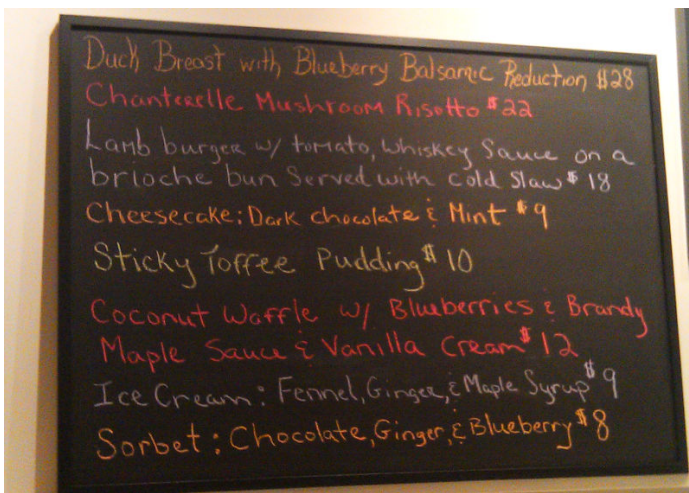 Duck Breast with Blueberry Balsamic Reduction $28
Chanterelle Mushroom Risotto $22
Lamb burger w/ tomato, whiskey Sauce on a
brioche bun Served with cold Slaw $18
Cheesecake: Dark chocolate & Mint $9
Sticky Toffee Pudding $10
Coconut Waffle w/ Blueberries & Brandy
Maple Sauce & Vanilla Cream $12
Ice Cream: Fennel, Ginger, & Maple Syrup $9
Sorbet: Chocolate, Ginger, & Blueberry $8